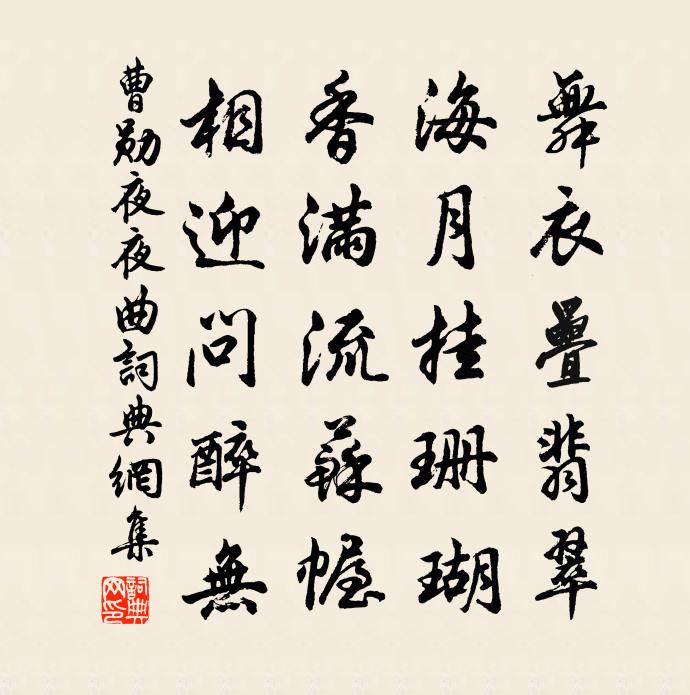 舞衣疊翡翠
海月挂珊瑚
香滿流蘇幄
相迎問醉無
曹勛夜夜曲詞典網集
詞典網印